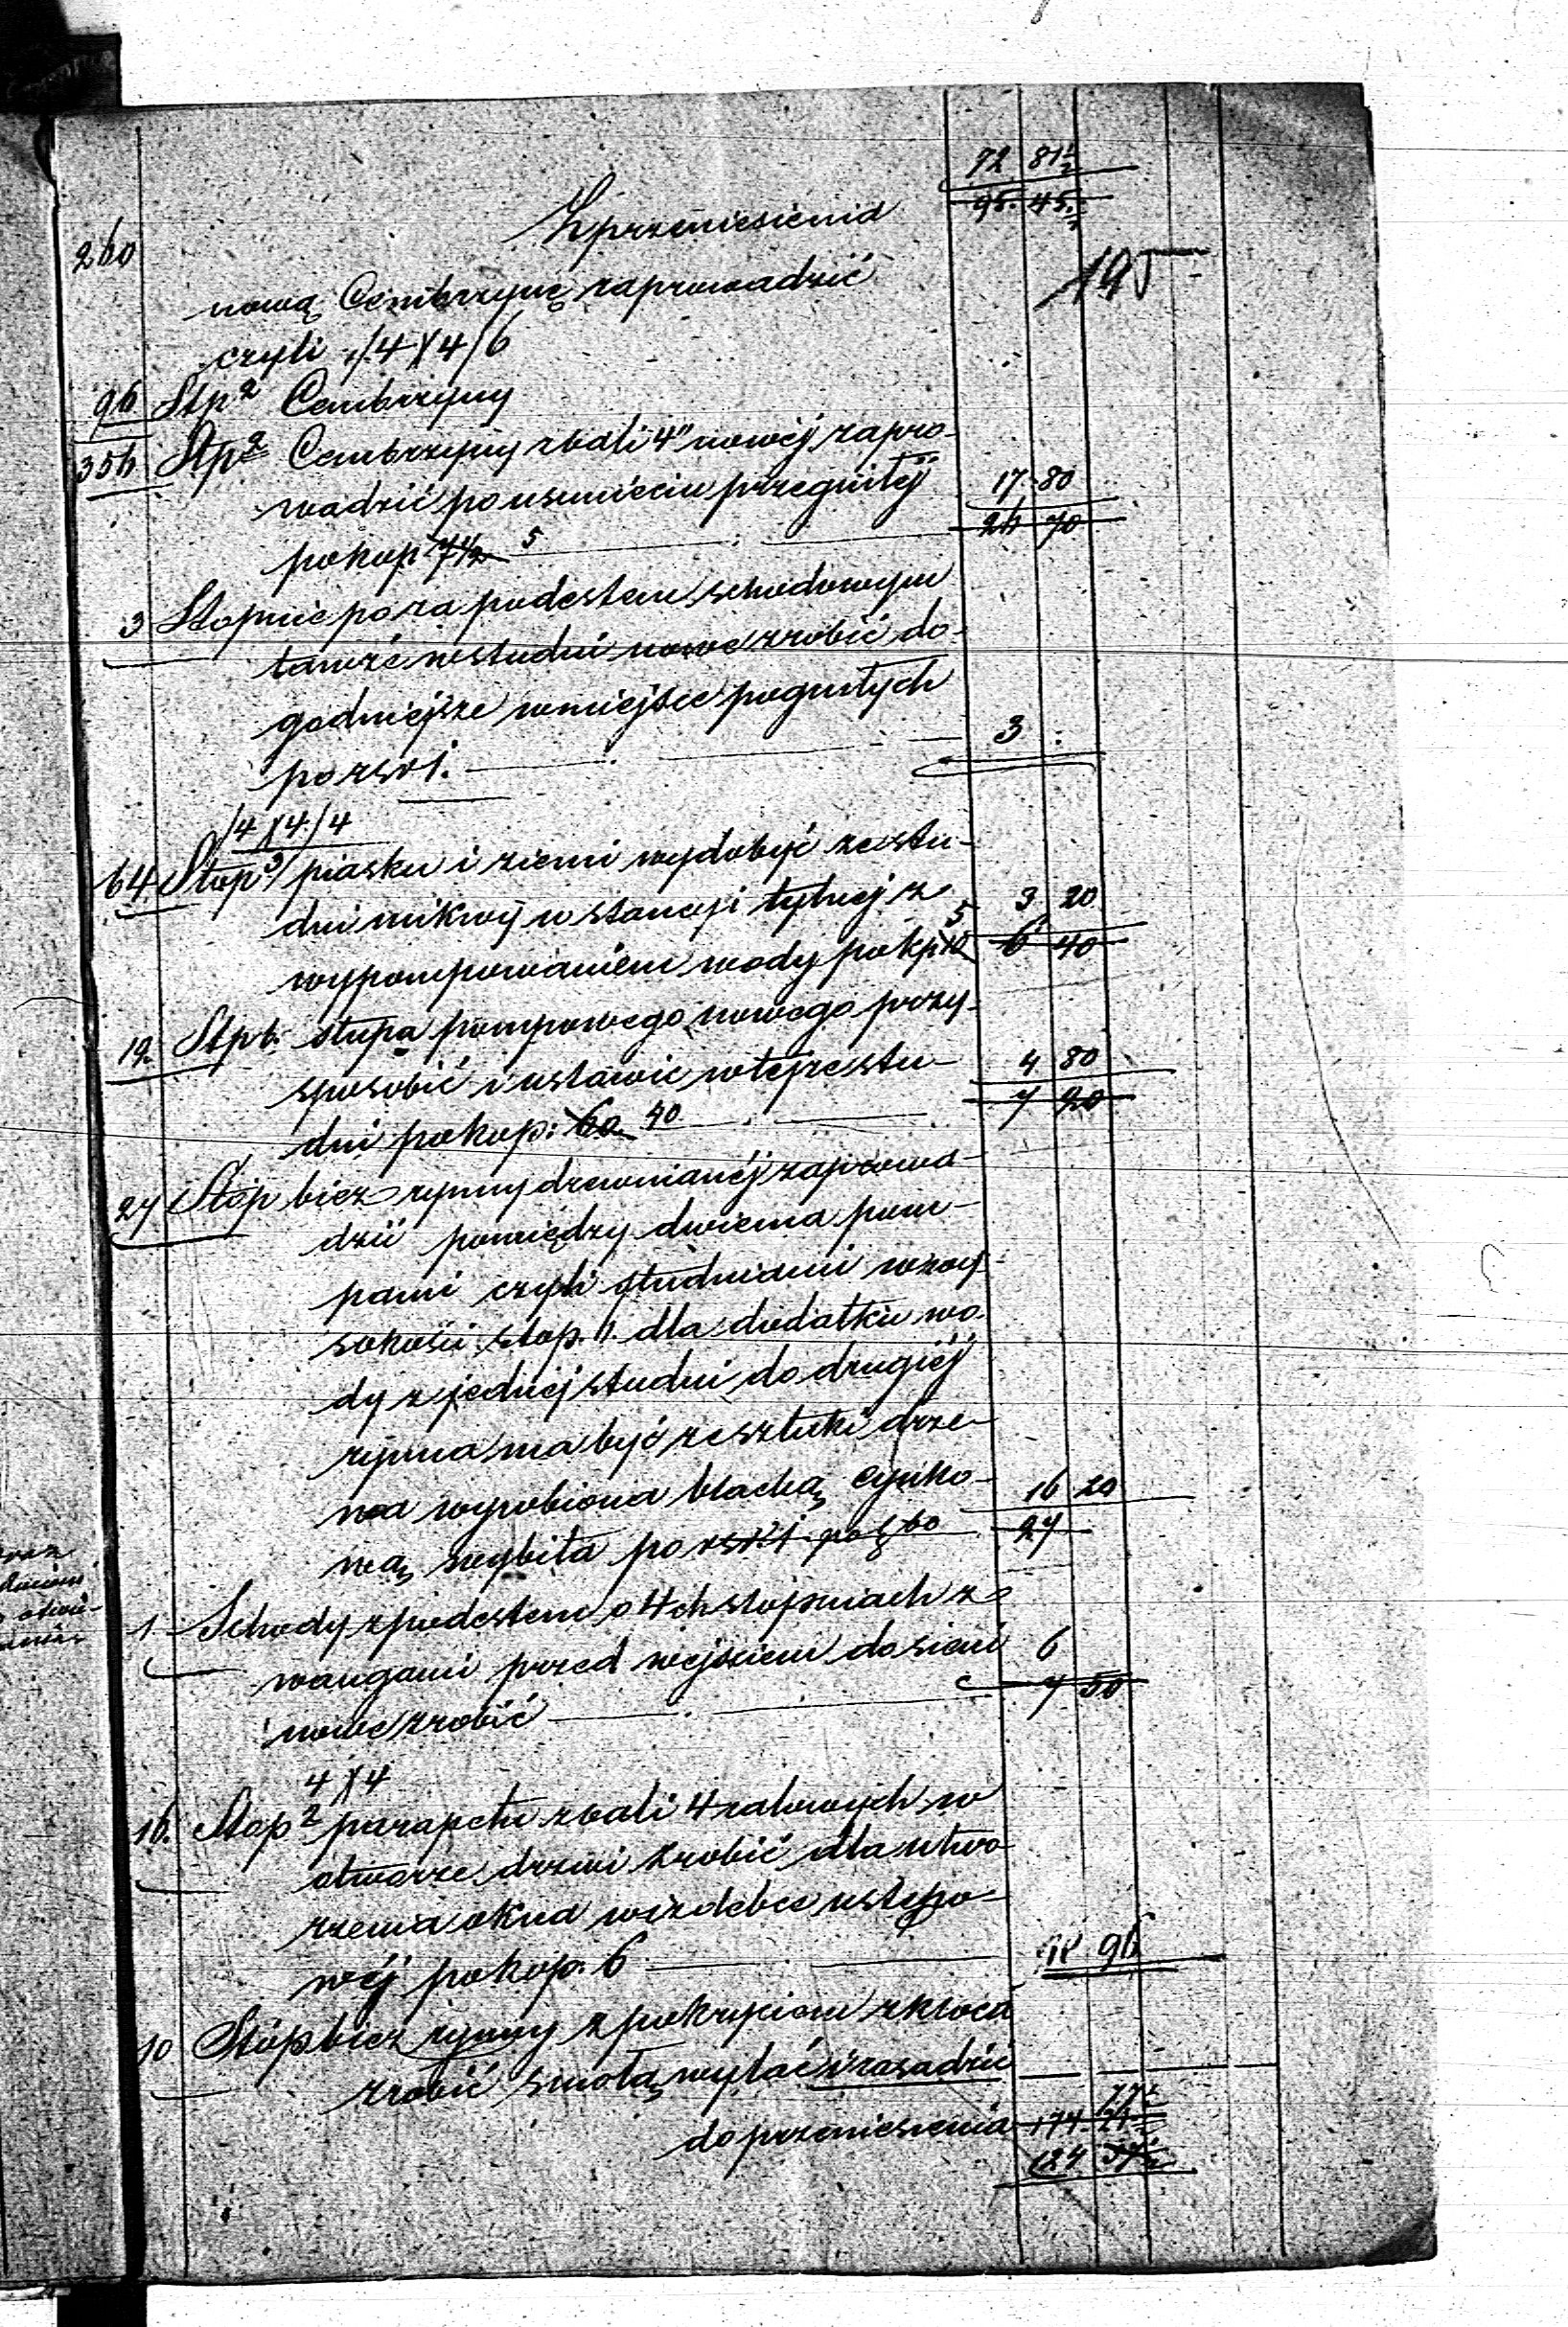 72 81½
Z przeniesienia 95. 45.½
260
195
nową Cembrzynę zaprowadzić
czyli /4 X 4/6
96 Stp² Cembrzyny
356 Stp² Cembrzyny z bali 4" nowéj zapro-
wadzić po usunięciu przegniłéj 17 80
po kop 7½ 5 26 70
3 Stopnie poza podestem schodowym
tamże w studni nowe zrobić do-
godniejsze w miejsce pogniłych
po rsr 1. 3
/4 X 4/4
64 Stop³ piasku i ziemi wydobyć ze stu-
dni mikwy w stancyi tylnej z 3 20
wypompowaniem wody po kp 10 5 6 40
12 Stp b. słupa pompowego nowego przy-
sposobić i ustawić w tejże stu- 4 80
dni po kop: 60 40 7 20
27 Stóp bież rynny drewnianéj zaprowa-
dzić pomiędzy dwiema pom-
pami czyli studniami w wy-
sokości stop. 11. dla dodatku wo-
dy z jednéj studni do drugiéj
rynna ma być ze sztuki drze-
wa wyrobiona blachą cynko- 16 20
wą wybita po rsr 1 po k 60 27
1 Schody z podestem o 4ch stopniach z
wangami przed wejściem do sieni 6
nowe zrobić 7 50
4 X 4
16. Stop² parapetu z bali 4 calowych w
otworze drzwi zrobić dla utwo-
rzenia okna w izdebce ustępo-
wéj po kop. 6 96
10 Stóp bież rynny z pokryciem z kloca
zrobić smołą wylać i zasadzić
do przeniesienia 174.
124 57½